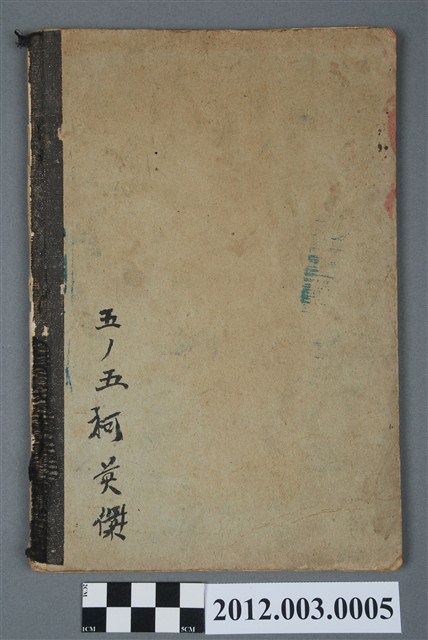 五ノ五柯英傑
2012.003.0005
2CM
1CM
5CM